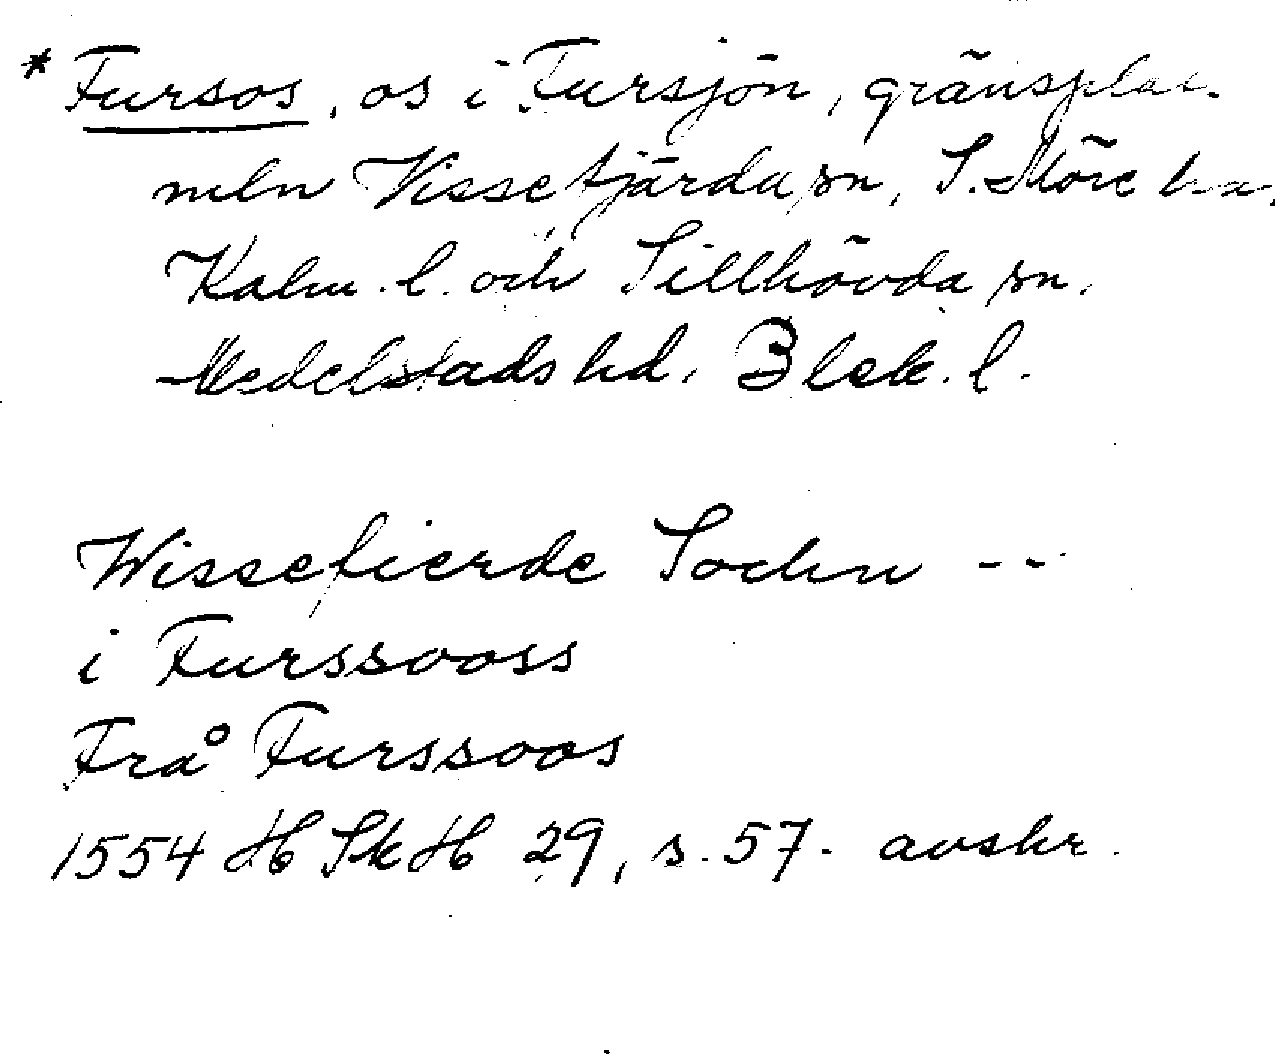 * Fursos, os i Fursjön, gränsplats
meln Vissefjärda sn, S. Möre hd,
Kalm. l. och Sillhövda sn,
Medelstads hd, Blek. l.
Wissefierde Sochn --
i Furssooss
Frå Furssoos
1554 HSkH 29, s. 57. avskr.